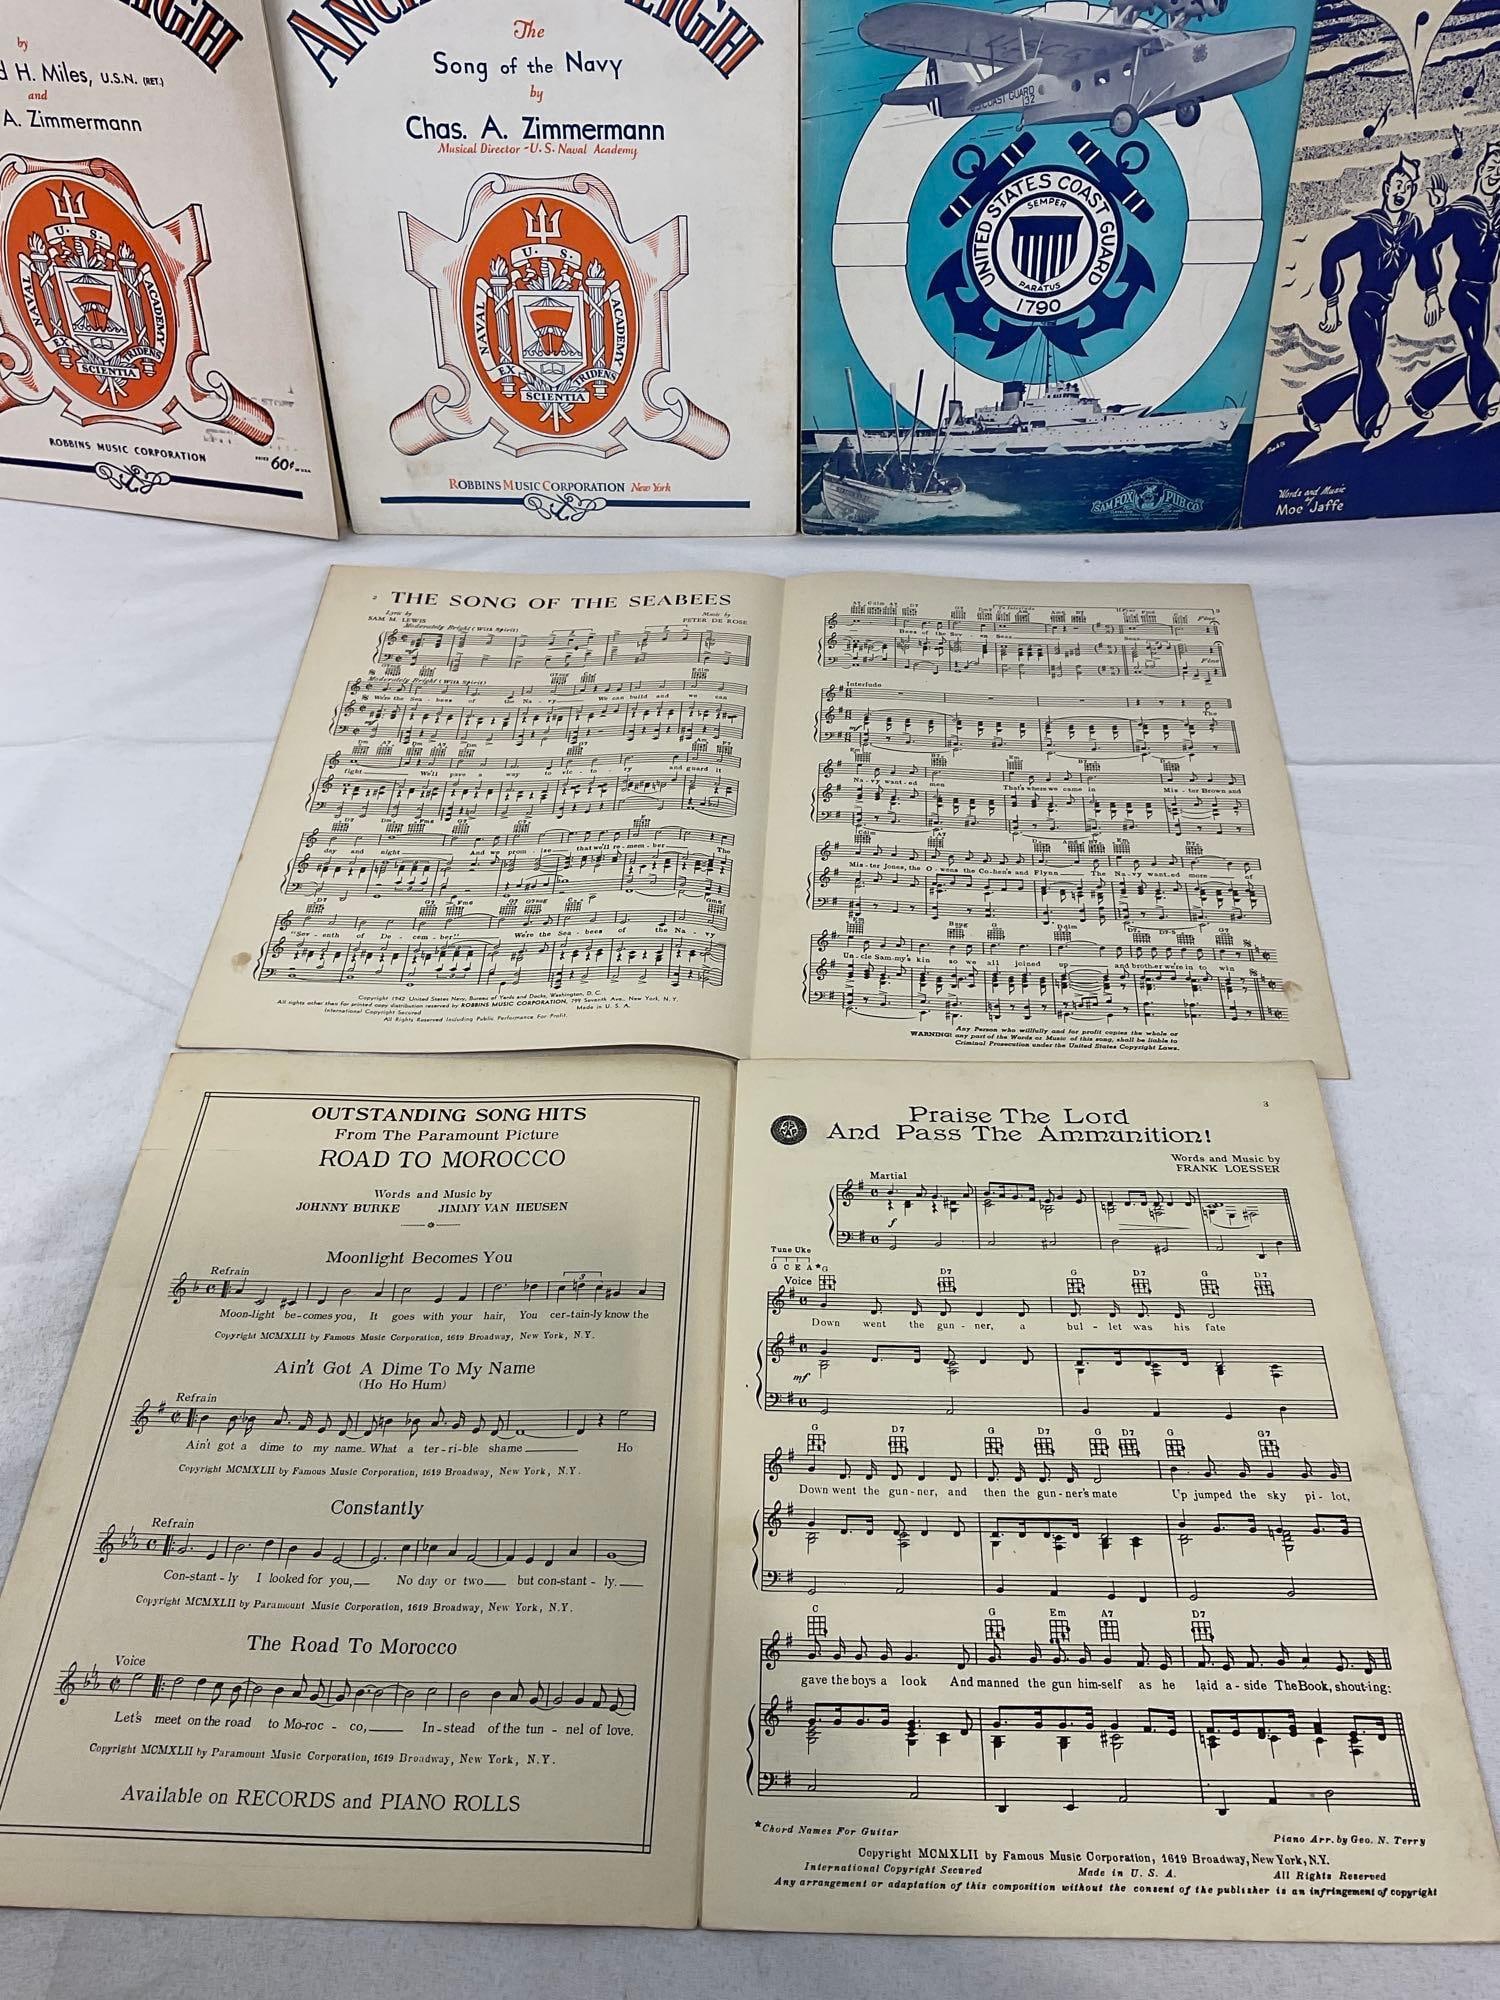 by
H. Miles, U.S.N. (RET.)
and
A. Zimmermann
U. S.
NAVAL
ACADEMY
EX
TRIDENS
SCIENTIA
ROBBINS MUSIC CORPORATION
PRICE 60¢
The
Song of the Navy
by
Chas. A. Zimmermann
Musical Director - U. S. Naval Academy
U. S.
NAVAL
ACADEMY
EX
TRIDENS
SCIENTIA
ROBBINS MUSIC CORPORATION New York
U.S. COAST GUARD
132
UNITED STATES COAST GUARD
SEMPER
PARATUS
1790
SAM FOX PUB. CO.
Words and Music
by
Moe Jaffe
2 THE SONG OF THE SEABEES
Lyric by
SAM M. LEWIS
Music by
PETER DE ROSE
Moderately Bright (With Spirit)
Moderately Bright (With Spirit)
We're the Sea - bees of the Na - vy We can build and we can
fight We'll pave a way to vic - to - ry and guard it
day and night And we prom - ise that we'll re - mem - ber The
"Sev - enth of De - cem - ber" We're the Sea - bees of the Na - vy
Copyright 1942 United States Navy, Bureau of Yards and Docks, Washington, D. C.
All rights other than for printed copy distribution reserved by ROBBINS MUSIC CORPORATION, 799 Seventh Ave., New York, N. Y.
International Copyright Secured Made in U. S. A.
All Rights Reserved Including Public Performance For Profit.
3
Bees of the Sev - en Seas Seas
Fine
Interlude
The
Na - vy want - ed men That's where we came in Mis - ter Brown and
Mis - ter Jones, the O - wens the Co - hen's and Flynn The Na - vy want - ed more of
Un - cle Sam - my's kin so we all joined up and brother we're in to win
Any Person who willfully and for profit copies the whole or
WARNING! any part of the Words or Music of this song, shall be liable to
Criminal Prosecution under the United States Copyright Laws.
OUTSTANDING SONG HITS
From The Paramount Picture
ROAD TO MOROCCO
Words and Music by
JOHNNY BURKE JIMMY VAN HEUSEN
Moonlight Becomes You
Refrain
3
Moon-light be-comes you, It goes with your hair, You cer-tain-ly know the
Copyright MCMXLII by Famous Music Corporation, 1619 Broadway, New York, N.Y.
Ain't Got A Dime To My Name
(Ho Ho Hum)
Refrain
Ain't got a dime to my name. What a ter-ri-ble shame Ho
Copyright MCMXLII by Famous Music Corporation, 1619 Broadway, New York, N.Y.
Constantly
Refrain
Con-stant-ly I looked for you, No day or two but con-stant-ly.
Copyright MCMXLII by Paramount Music Corporation, 1619 Broadway, New York, N.Y.
The Road To Morocco
Voice
Let's meet on the road to Mo-roc - co, In-stead of the tun - nel of love.
Copyright MCMXLII by Paramount Music Corporation, 1619 Broadway, New York, N.Y.
Available on RECORDS and PIANO ROLLS
3
Praise The Lord
And Pass The Ammunition!
Words and Music by
FRANK LOESSER
Martial
f
Tune Uke
G C E A
*G D7 G D7 G D7
Voice
Down went the gun - ner, a bul - let was his fate
mf
G D7 G D7 G D7 G G7
Down went the gun - ner, and then the gun - ner's mate Up jumped the sky pi - lot,
C G Em A7 D7
gave the boys a look And manned the gun him-self as he laid a - side The Book, shout-ing:
*Chord Names For Guitar
Piano Arr. by Geo. N. Terry
Copyright MCMXLII by Famous Music Corporation, 1619 Broadway, New York, N.Y.
International Copyright Secured Made in U. S. A. All Rights Reserved
Any arrangement or adaptation of this composition without the consent of the publisher is an infringement of copyright